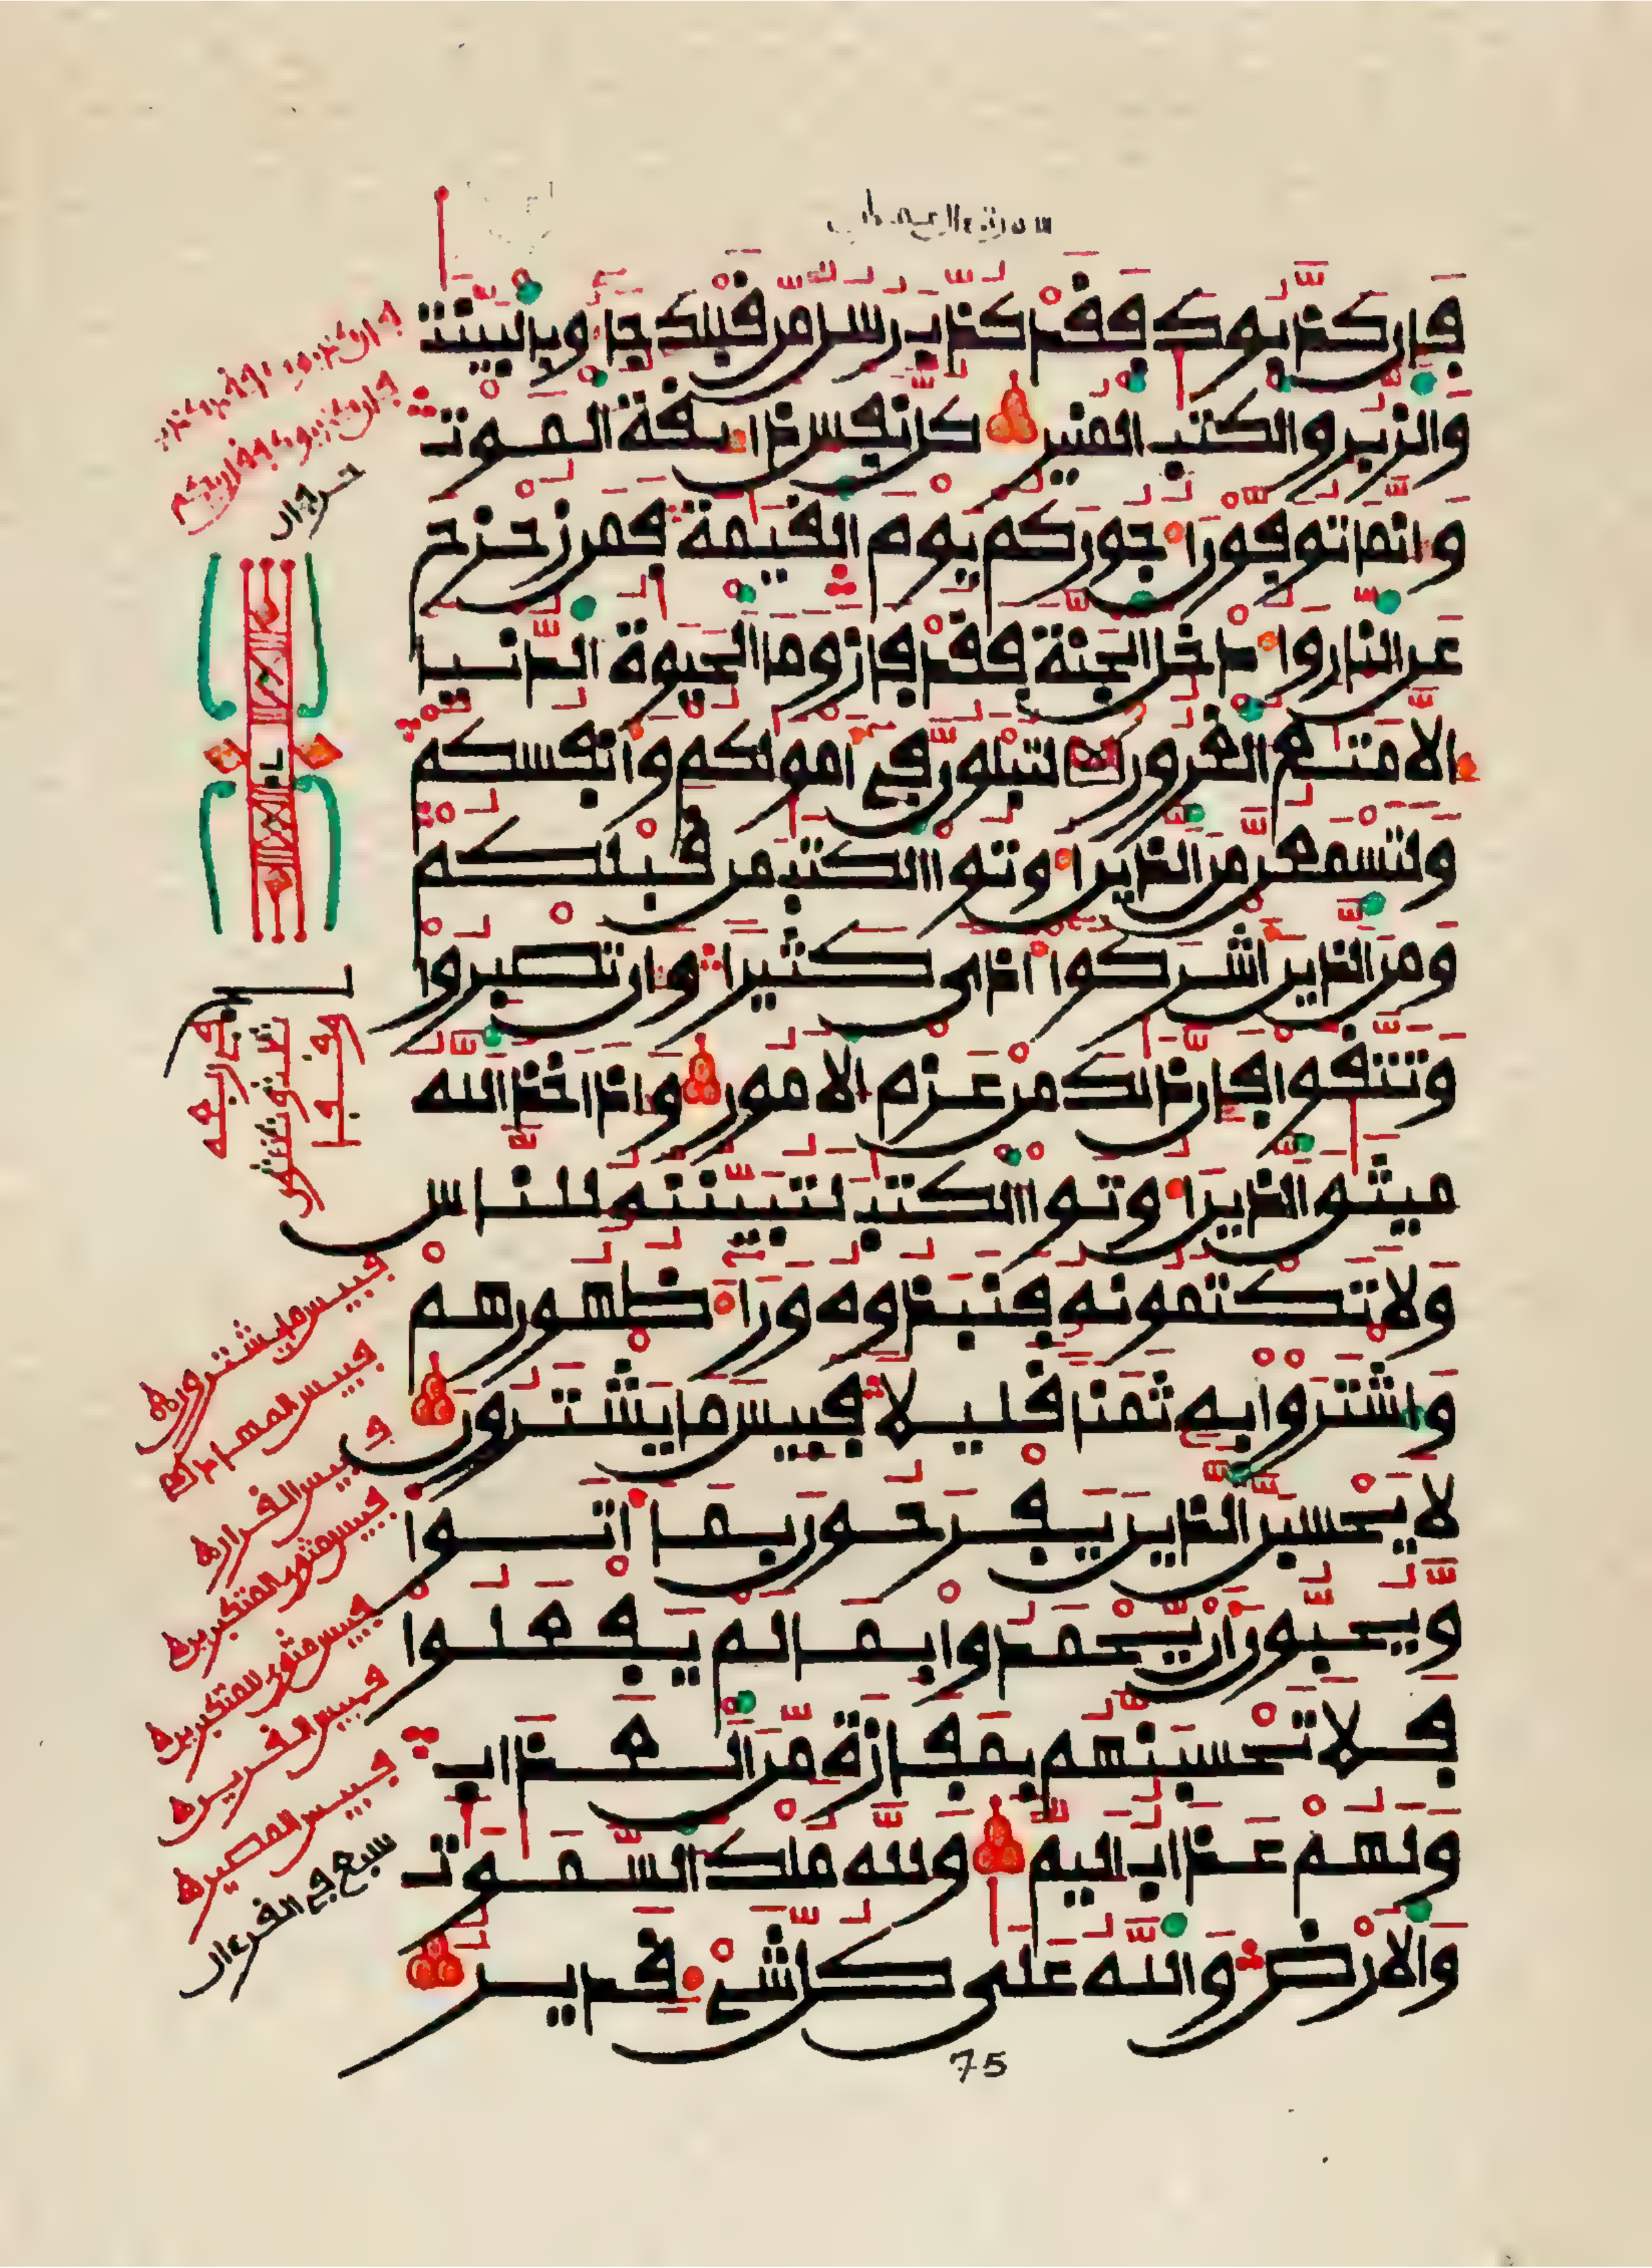 سورة ءال عمران
فإن كذبوك فقد كذب رسل من قبلك جاءو بالبينت
والزبر والكتب المنير كل نفس ذائقة الموت
وإنما توفون أجوركم يوم القيمة فمن زحزح
عن النار وأدخل الجنة فقد فاز وما الحيوة الدنيا
إلا متع الغرور لتبلون في أمولكم وأنفسكم
ولتسمعن من الذين أوتوا الكتب من قبلكم
ومن الذين أشركوا أذى كثيرا وإن تصبروا
وتتقوا فإن ذلك من عزم الأمور وإذ أخذ الله
ميثق الذين أوتوا الكتب لتبيننه للناس
ولا تكتمونه فنبذوه وراء ظهورهم
واشتروا به ثمنا قليلا فبيس ما يشترون
لا يحسبن الذين يفرحون بما أتوا
ويحبون أن يحمدوا بما لم يفعلوا
فلا تحسبنهم بمفازة من العذاب
ولهم عذاب أليم ولله ملك السموت
والأرض والله على كل شيء قدير
75
فبيس ما يشترون
فبيس المهاد
فبيس القرار
فبيس مثوى المتكبرين
فبيس مثوى المتكبرين
فبيس القرين
فبيس المصير
سبع في القرءان